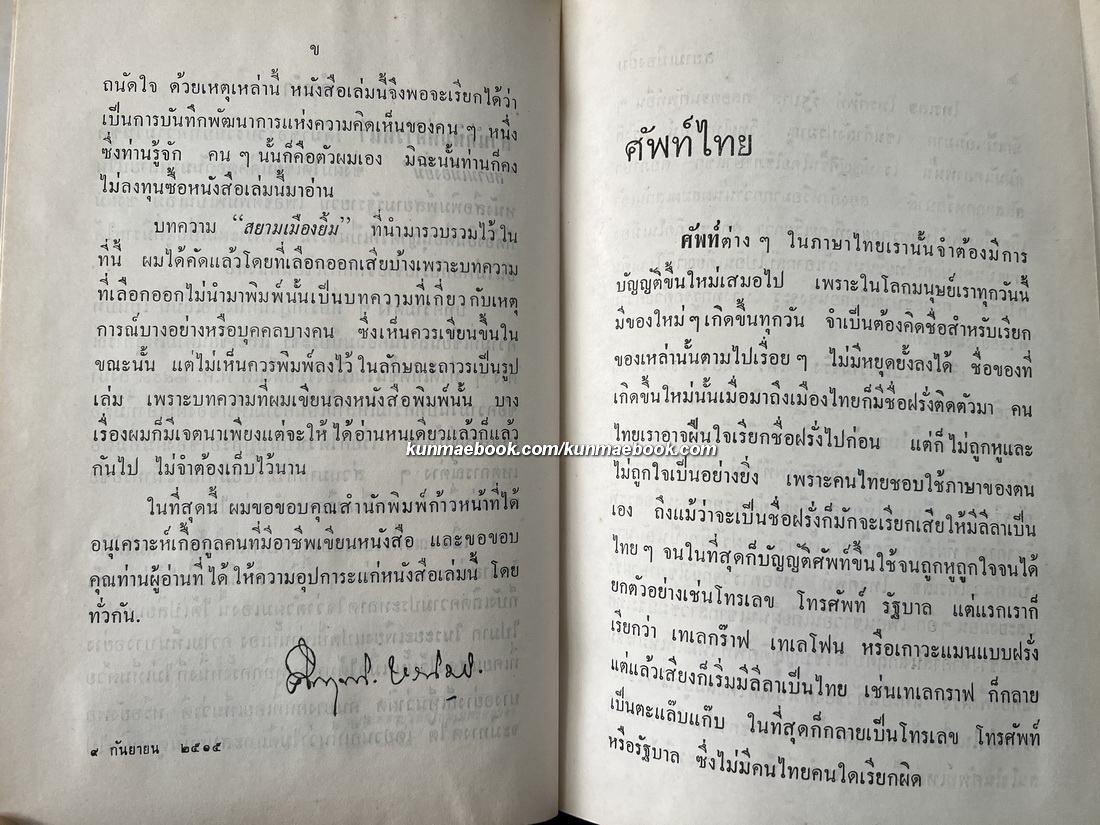 ข
ถนัดใจ ด้วยเหตุเหล่านี้ หนังสือเล่มนี้จึงพอจะเรียกได้ว่า
เป็นการบันทึกพัฒนาการแห่งความคิดเห็นของคน ๆ หนึ่ง
ซึ่งท่านรู้จัก คน ๆ นั้นก็คือตัวผมเอง มิฉะนั้นท่านก็คง
ไม่ลงทุนซื้อหนังสือเล่มนี้มาอ่าน
บทความ “สยามเมืองยิ้ม” ที่นำมารวบรวมไว้ใน
ที่นี้ ผมได้คัดแล้วโดยที่เลือกออกเสียบ้างเพราะบทความ
ที่เลือกออกไม่นำมาพิมพ์นั้นเป็นบทความที่เกี่ยวกับเหตุ
การณ์บางอย่างหรือบุคคลบางคน ซึ่งเห็นควรเขียนขึ้นใน
ขณะนั้น แต่ไม่เห็นควรพิมพ์ลงไว้ในลักษณะถาวรเป็นรูป
เล่ม เพราะบทความที่ผมเขียนลงหนังสือพิมพ์นั้น บาง
เรื่องผมก็มีเจตนาเพียงแต่จะให้ได้อ่านหนเดียวแล้วก็แล้ว
กันไป ไม่จำต้องเก็บไว้นาน
ในที่สุดนี้ ผมขอขอบคุณสำนักพิมพ์ก้าวหน้าที่ได้
อนุเคราะห์เกื้อกูลคนที่มีอาชีพเขียนหนังสือ และขอขอบ
คุณท่านผู้อ่านที่ได้ให้ความอุปการะแก่หนังสือเล่มนี้ โดย
ทั่วกัน.
๙ กันยายน ๒๕๑๕
ศัพท์ไทย
ศัพท์ต่าง ๆ ในภาษาไทยเรานั้นจำต้องมีการ
บัญญัติขึ้นใหม่เสมอไป เพราะในโลกมนุษย์เราทุกวันนี้
มีของใหม่ ๆ เกิดขึ้นทุกวัน จำเป็นต้องคิดชื่อสำหรับเรียก
ของเหล่านั้นตามไปเรื่อย ๆ ไม่มีหยุดยั้งลงได้ ชื่อของที่
เกิดขึ้นใหม่นั้นเมื่อมาถึงเมืองไทยก็มีชื่อฝรั่งติดตัวมา คน
ไทยเราอาจฝืนใจเรียกชื่อฝรั่งไปก่อน แต่ก็ไม่ถูกหูและ
kunmaebook.com/kunmaebook.com
ไม่ถูกใจเป็นอย่างยิ่ง เพราะคนไทยชอบใช้ภาษาของตน
เอง ถึงแม้ว่าจะเป็นชื่อฝรั่งก็มักจะเรียกเสียให้มีลีลาเป็น
ไทย ๆ จนในที่สุดก็บัญญัติศัพท์ขึ้นใช้จนถูกหูถูกใจจนได้
ยกตัวอย่างเช่นโทรเลข โทรศัพท์ รัฐบาล แต่แรกเราก็
เรียกว่า เทเลกร๊าฟ เทเลโฟน หรือเกาวะแมนแบบฝรั่ง
แต่แล้วเสียงก็เริ่มมีลีลาเป็นไทย เช่นเทเลกราฟ ก็กลาย
เป็นตะแล๊บแก๊บ ในที่สุดก็กลายเป็นโทรเลข โทรศัพท์
หรือรัฐบาล ซึ่งไม่มีคนไทยคนใดเรียกผิด